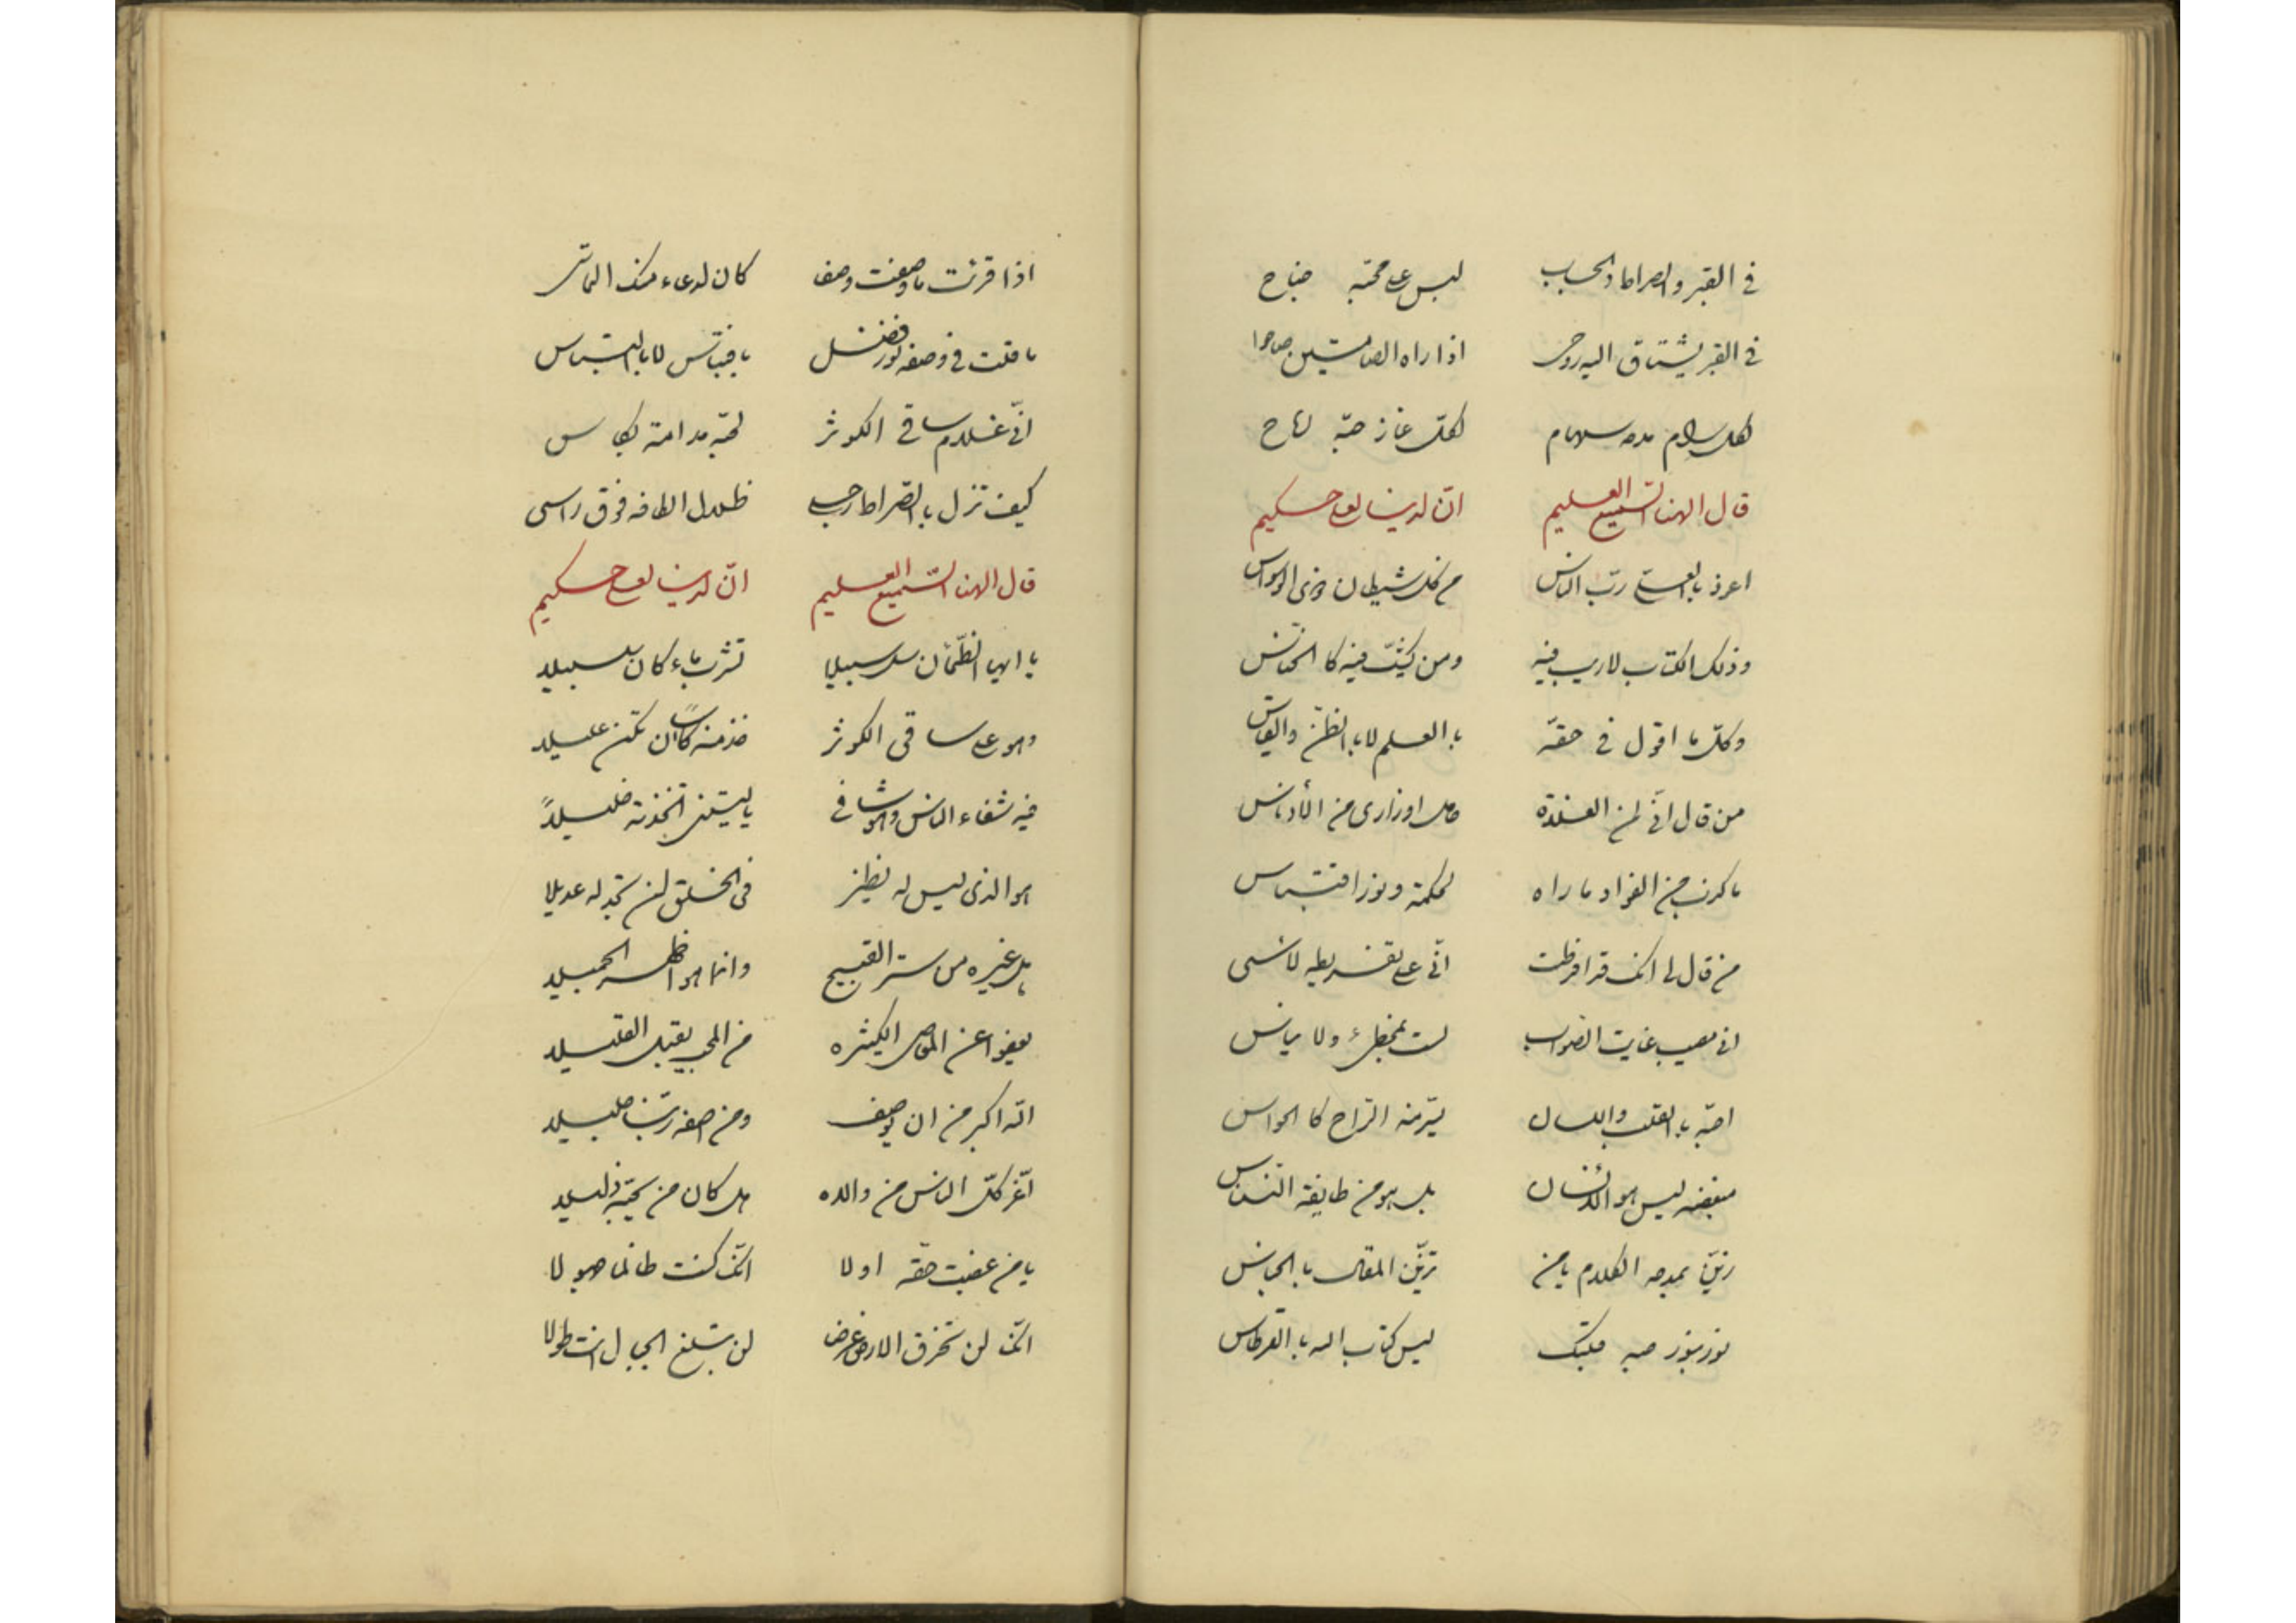 في القبر والصراط والحساب ليس على محبه جناح
في القبر يشتاق اليه روحي اذا راه الصامتين صاحوا
لكل رام مدحه سهام لكل غاز حبه سلاح
قال الهنا السميع العليم ان لدينا لعلي حكيم
اعوذ بالعلي رب الناس من كل شيطان وذي الوسواس
وذلك الكتاب لا ريب فيه ومن يشك فيه كالخناس
وكل ما اقول في حقه بالعلم لا بالظن والقياس
من قال اني لمن الغلاة حامل اوزاري من الأدناس
ما كذب من الفؤاد ما راه لحكمة ونور اقتباس
من قال لي انك قد افرطت اني على تفريطه لأسى
اني مصيب غايت الصواب لست بمخطئ ولا بناس
احبه بالقلب واللسان
مبغضه ليس هو الانسان بل هو من طايفة النسناس
زين بمدحه الكلام يا من تزين المقال بالجناس
نور بنور حبه قلبك ليس كتاب الله بالقرطاس
اذا قرئت ما وصفت وصفا كان لدعاء منك التماس
ما قلت في وصفه نور فضل باقتباس لا بالتباس
اني غلام ساقي الكوثر لحبه مدامة بكاس
كيف تزل بالصراط رجلي ظلال الطافه فوق راسي
قال الهنا السميع العليم ان لدينا لعلي حكيم
يا ايها الظمآن سل سبيلا تشرب ماء كان سلسبيلا
وهو على ساقي الكوثر خذ منه كاسا ان تكن عليلا
فيه شفاء الناس وهو الشافي يا ليتني اتخذته خليلاً
هو الذي ليس له نظير في الخلق لن تجد له عديلا
هل غيره من ستر القبيح وانما هو اظهر الجميلا
يعفوا عن المعاصي الكثيره من المحب يقبل القليلا
انه اكبر من ان يوصف ومن اصفه ربنا جليلا
اعز كل الناس من والاه هل كان من يحبه ذليلا
يا من غصبت حقه اولا انك كنت ظالما جهولا
انك لن تخرق الارض عرض لن تبلغ الجبال انت طولا